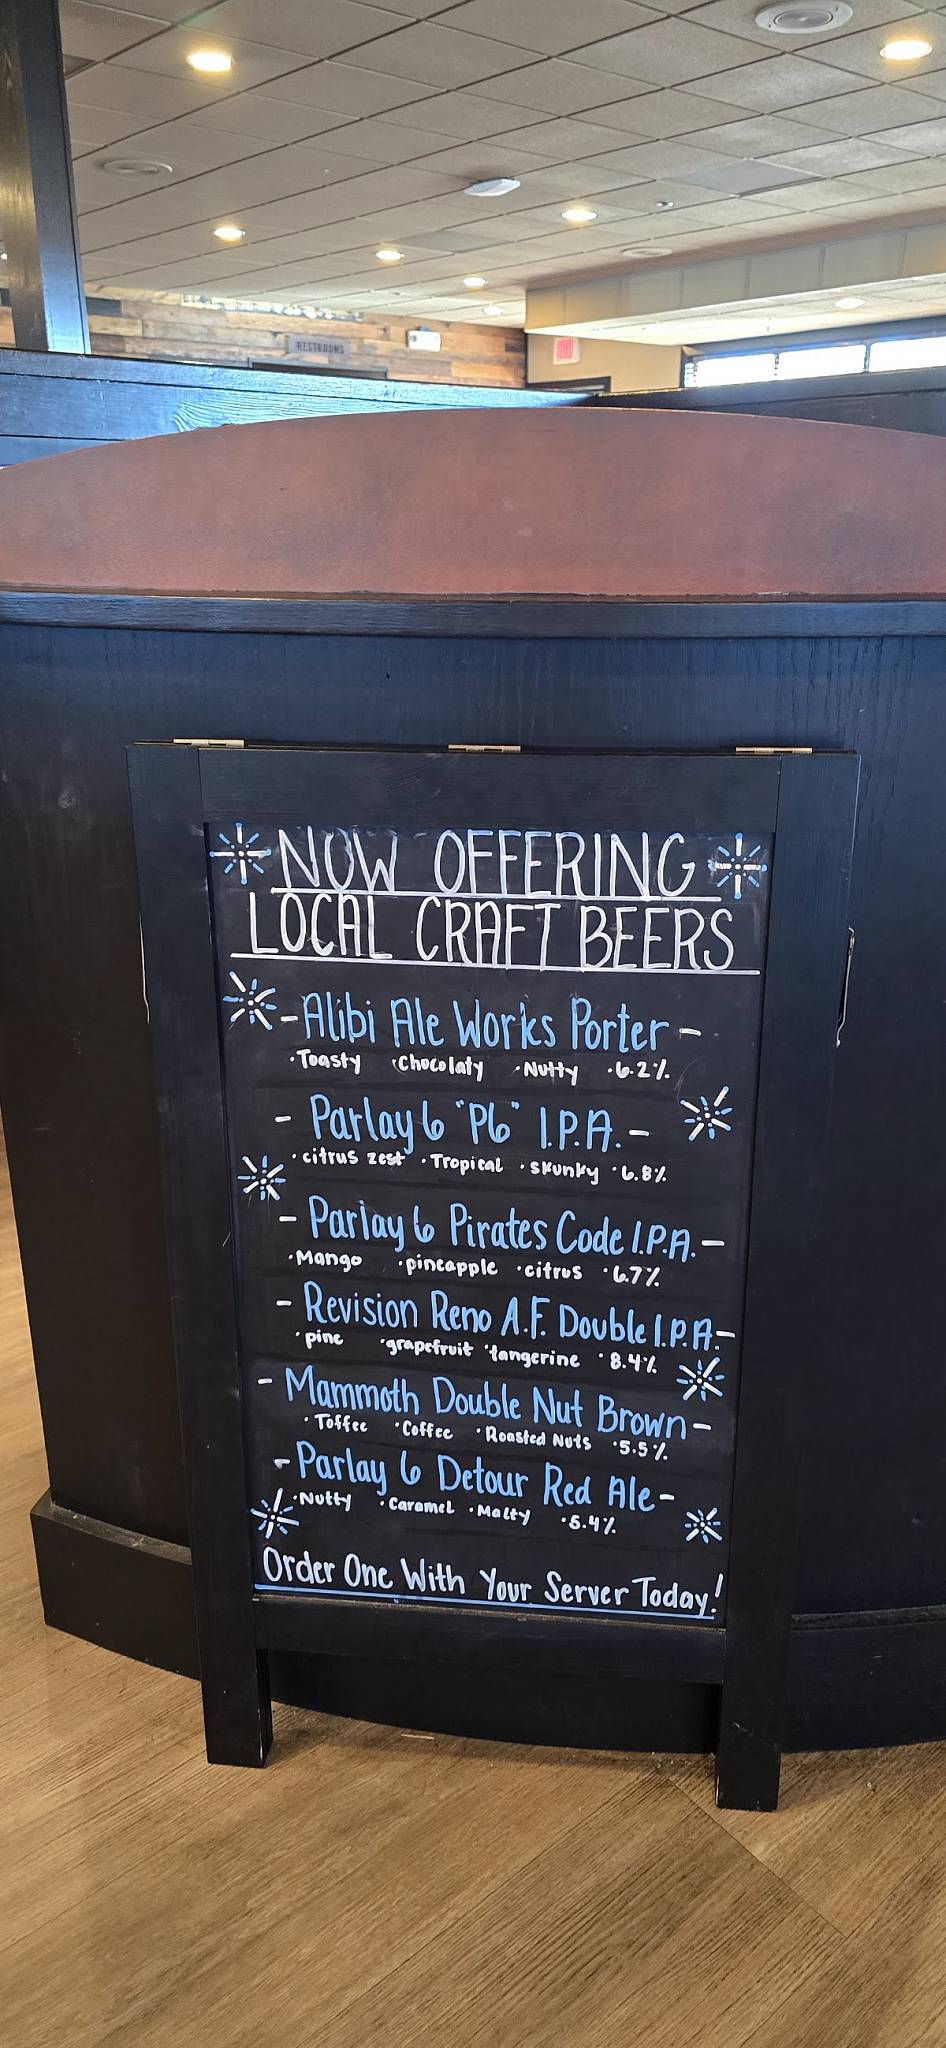 RESTROOMS
NOW OFFERING
LOCAL CRAFT BEERS
- Alibi Ale Works Porter -
·Toasty ·Chocolaty ·Nutty ·6.2%
- Parlay 6 "P6" I.P.A. -
·citrus zest ·Tropical ·skunky ·6.8%
- Parlay 6 Pirates Code I.P.A. -
·Mango ·pineapple ·citrus ·6.7%
- Revision Reno A.F. Double I.P.A. -
·pine ·grapefruit ·tangerine ·8.4%
- Mammoth Double Nut Brown -
·Toffee ·Coffee ·Roasted Nuts ·5.5%
- Parlay 6 Detour Red Ale -
·Nutty ·Caramel ·Malty ·5.4%
Order One With Your Server Today!